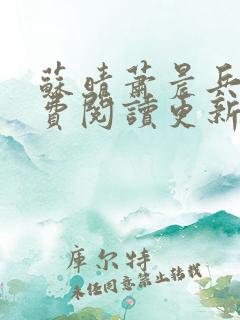 蘇晴蕭晨兵
費閱讀更新
库尔特
未经同意禁止转载